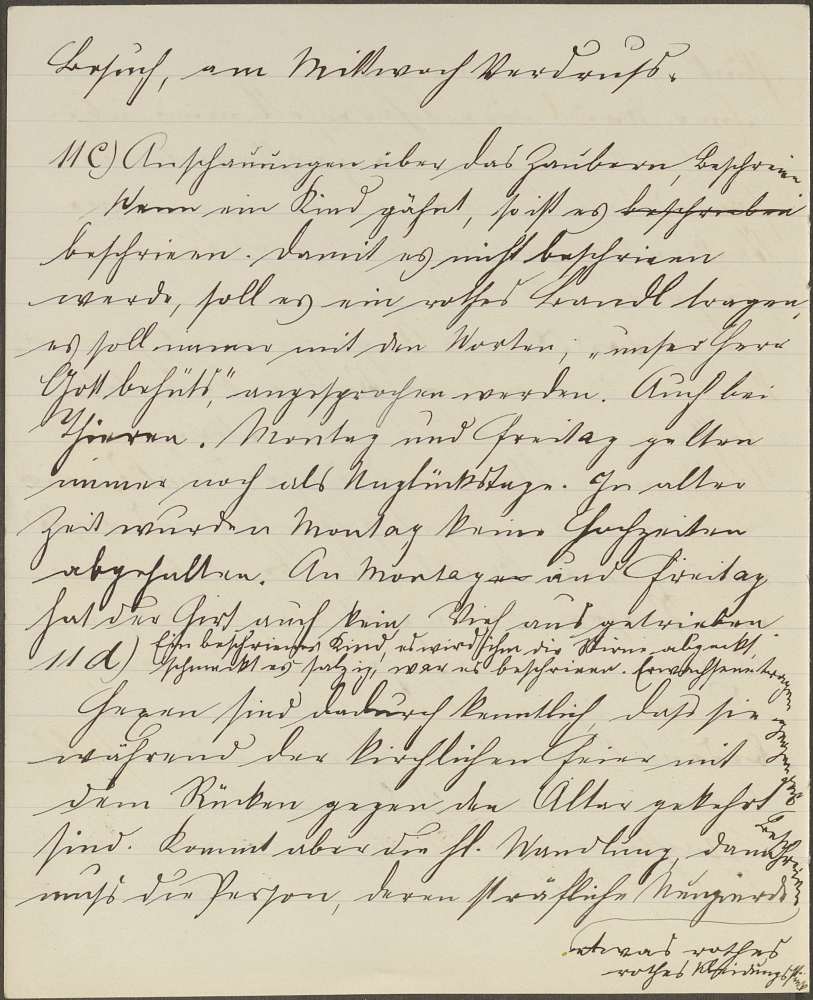 Besuch, am Mittwoch Verdruss.
11 c) Anschauungen über das Zaubern, Beschreien
Wenn ein Kind gähnt, so ist es beschrieben
beschrieen. Damit es nicht beschrieen
werde, soll es ein rothes Bandl tragen,
es soll immer mit den Worten; „unser Herr
Gott behüts," angesprochen werden. Auch bei
Thieren. Montag und Freitag gelten
immer noch als Unglückstage. In alter
Zeit wurden Montag keine Hochzeiten
abgehalten. An Montagen und Freitag
hat der Hirt auch kein Vieh aus getrieben
Ein beschrieenes Kind, es wird ihm die Stirne abgeleckt,
11 d) schmeckt es salzig, war es beschrieen. Erwachsene tragen
gegen das Beschreien
Hexen sind dadurch kenntlich, dass sie
während der kirchlichen Feier mit
dem Rücken gegen den Altar gekehrt
sind. Kommt aber die hl. Wandlung, dann
muss die Person, deren sträfliche Neugierde
etwas rothes
rothes Kleidungsstück